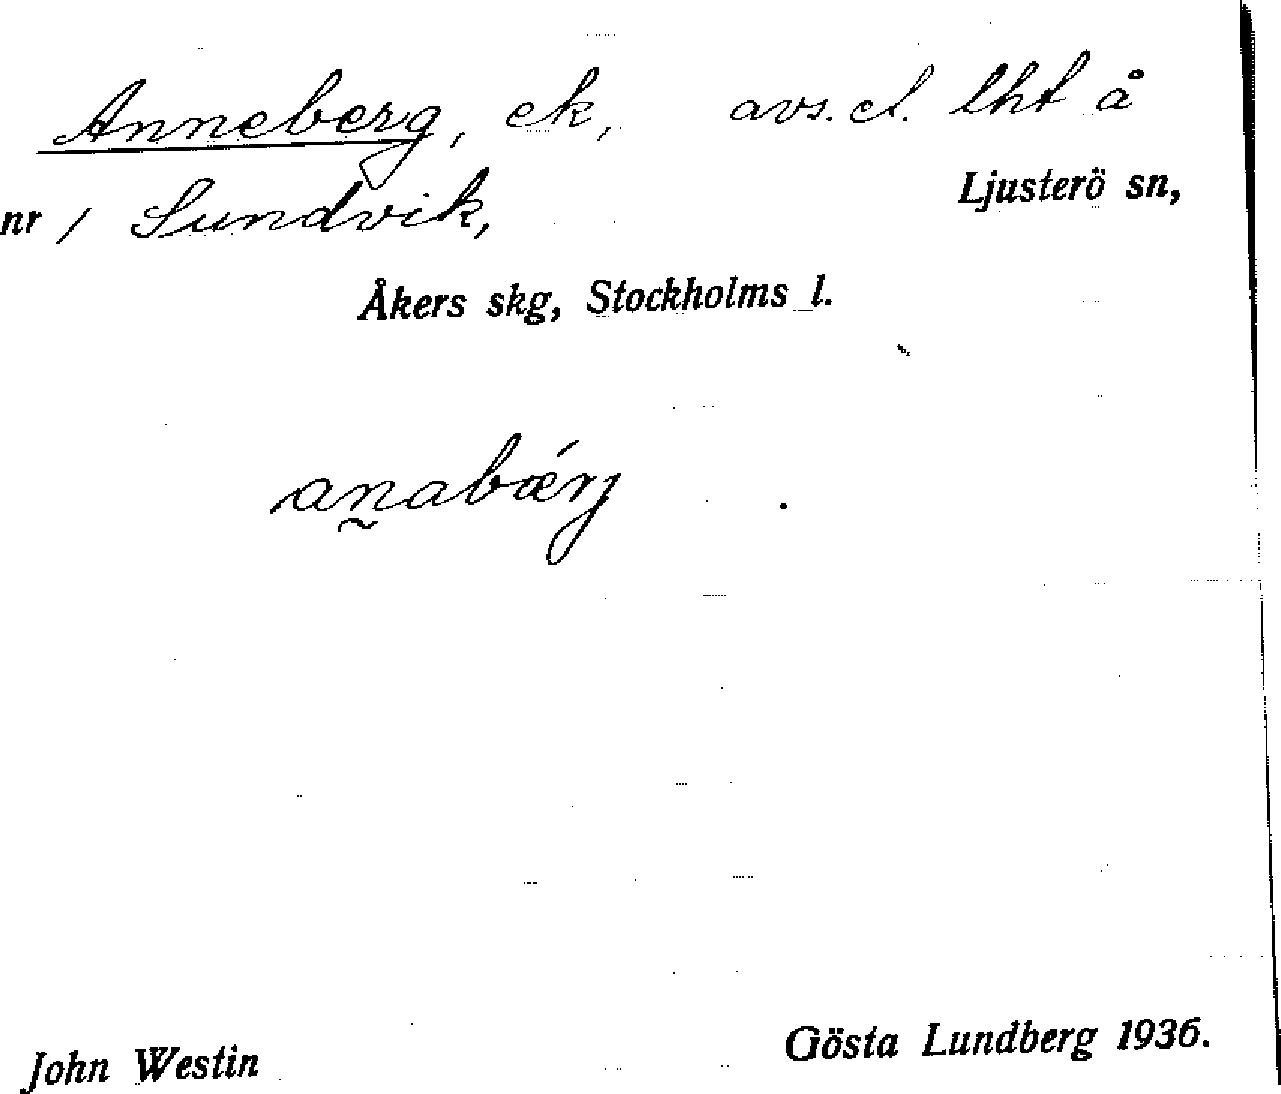 Anneberg, ek, avs. el. lht å
nr 1 Sundvik, Ljusterö sn,
Åkers skg, Stockholms l.
aṋabǽrj
John Westin Gösta Lundberg 1936.